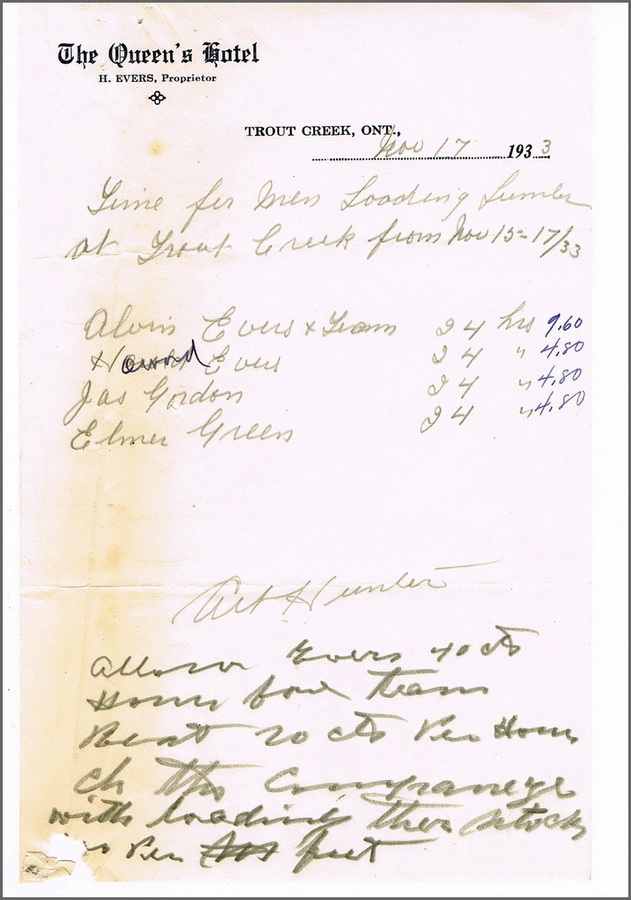 The Queen's Hotel
H. EVERS, Proprietor
TROUT CREEK, ONT.,
Nov 17 1933
Time for Men Loading Lumber
at Trout Creek from Nov 15-17/33
Alvin Evers & Team 24 hrs 9.60
Howard Evers 24 " 4.80
Jas Gordon 24 " 4.80
Elmer Green 24 " 4.80
Art Hunter
Allow Evers 40 cts
Hour for team
Rest 20 cts Per Hour
Ch the
with loading ther stock
Per feet